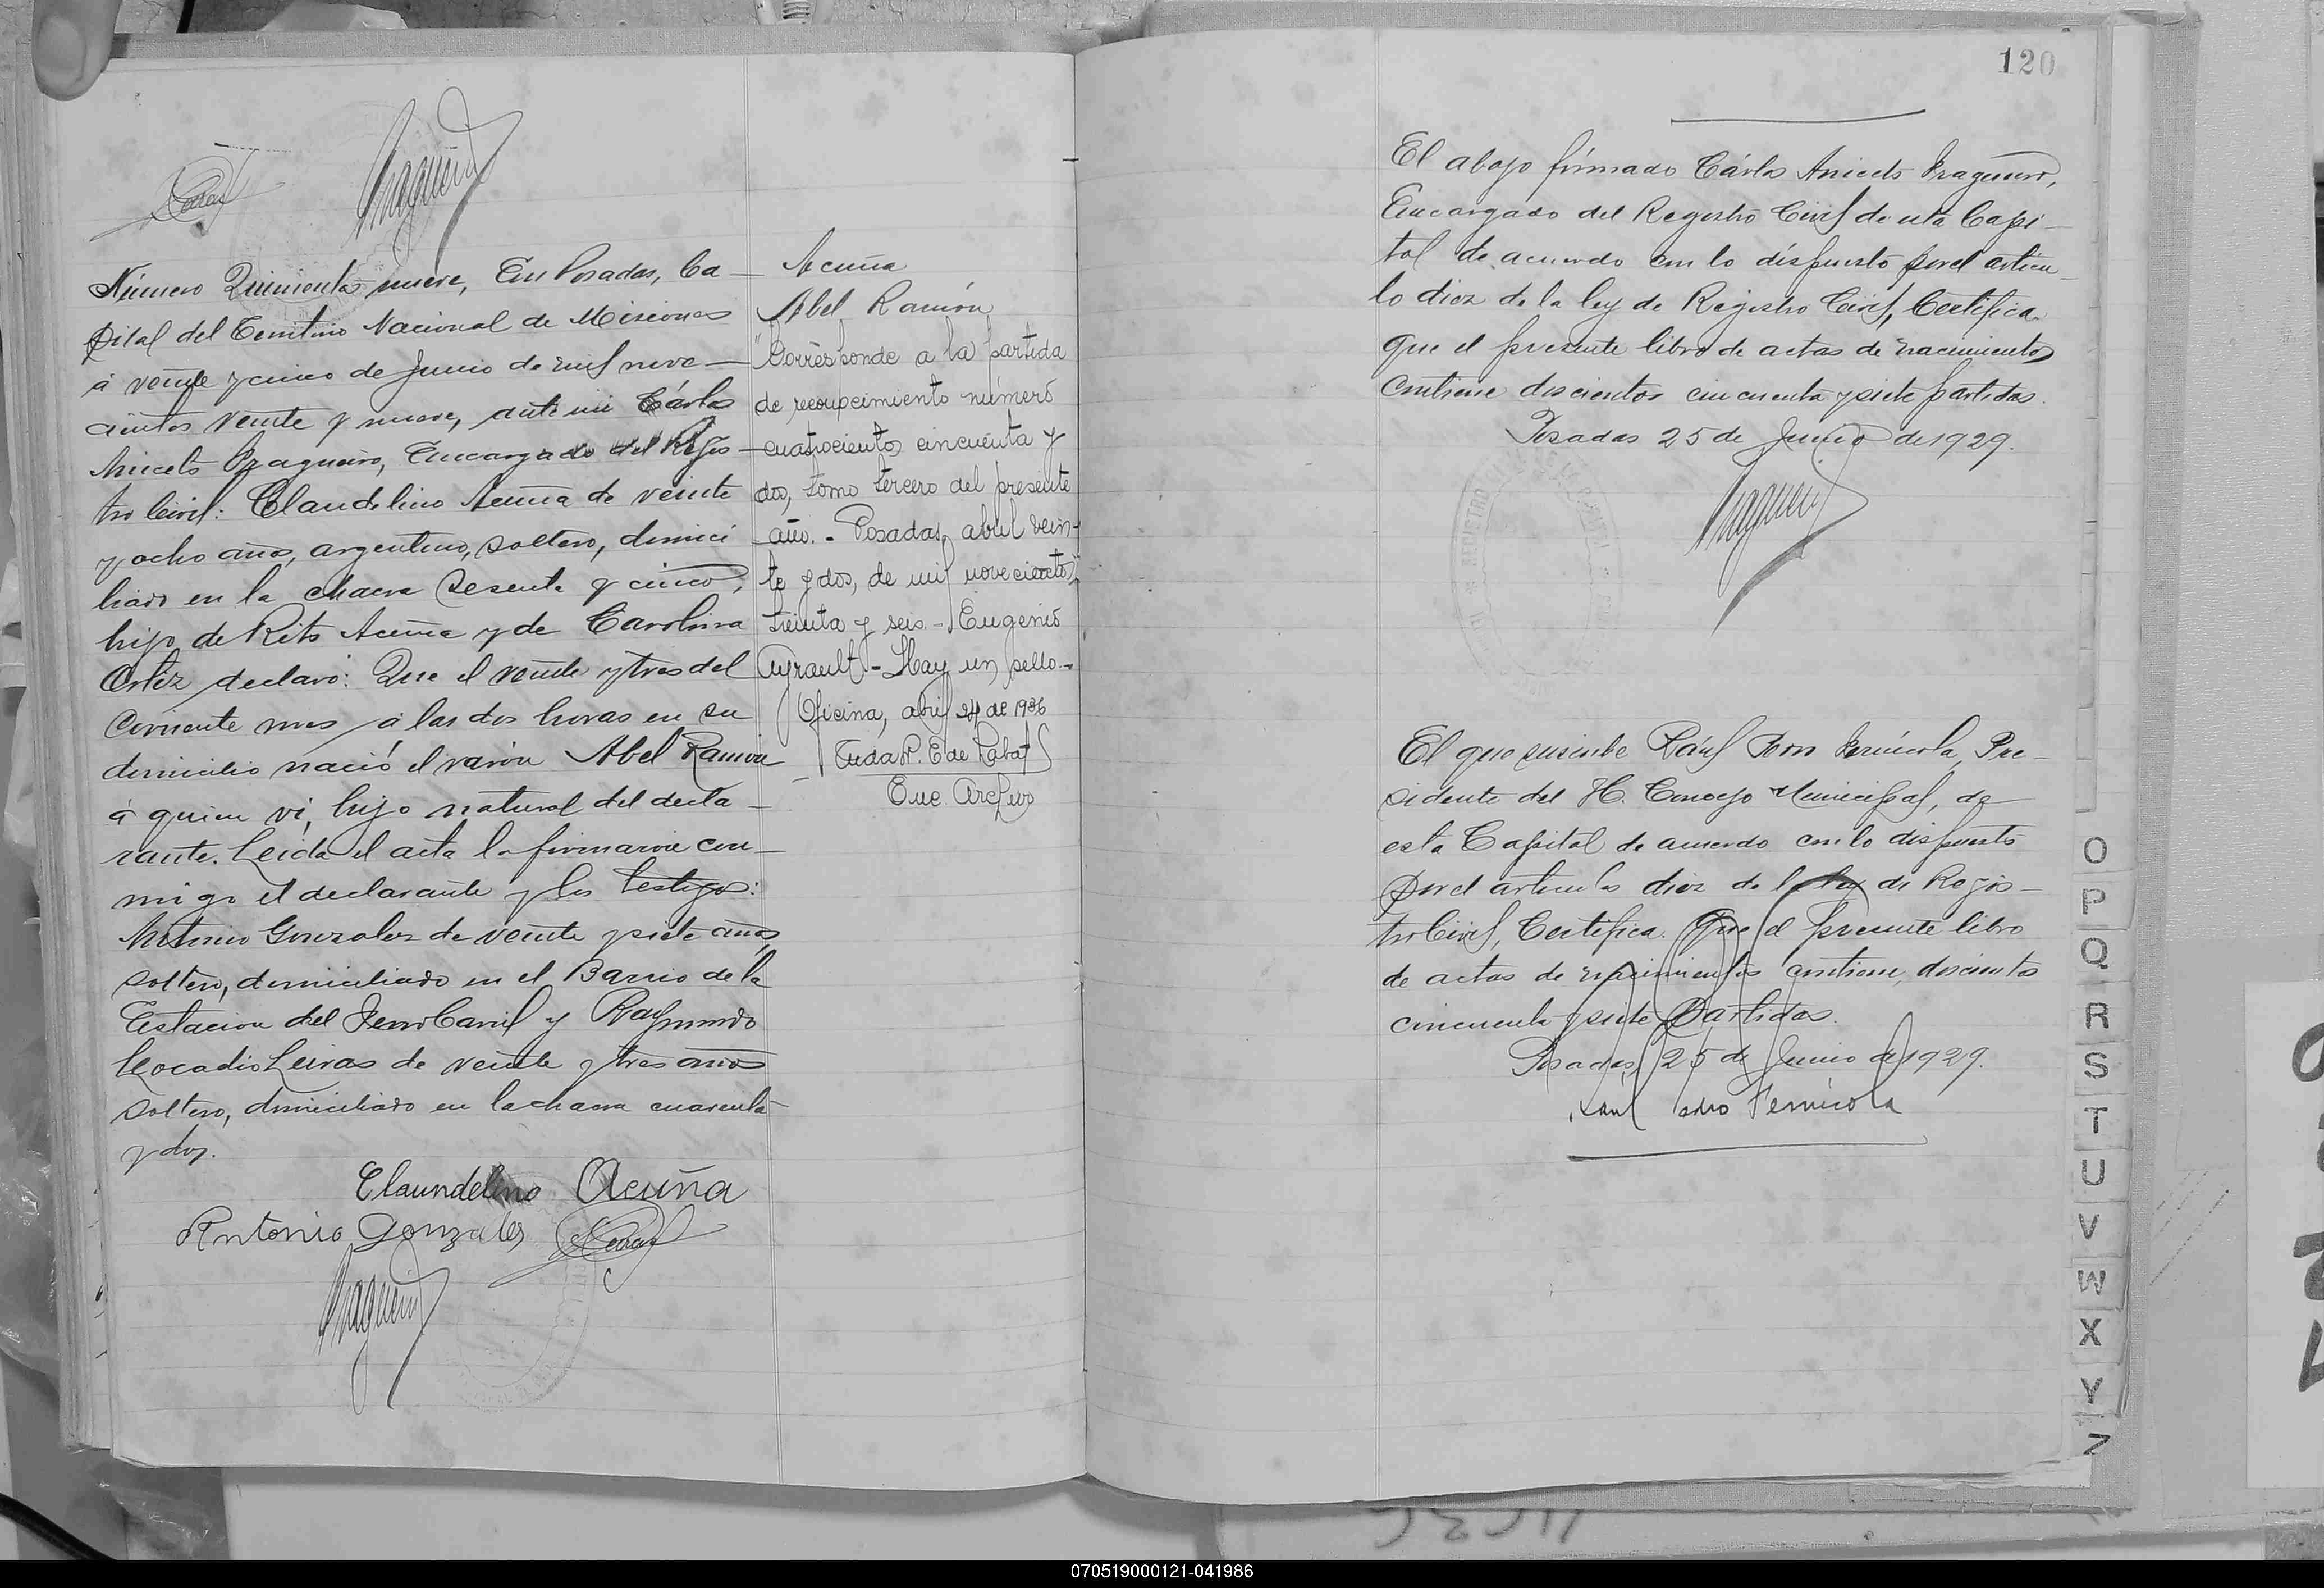 Número Quinientos nueve, En Posadas, Ca-
pital del Territorio Nacional de Misiones
á veinte y cinco de Junio de mil nove-
cientos veinte y nueve, ante mi Cárlos
Aniceto Fragueiro, Encargado del Regis-
tro Civil: Claudelino Acuña de veinte
y ocho años, argentino, soltero, domici
liado en la chacra sesenta y cinco,
hijo de Rito Acuña y de Carolina
Ortiz declaró: Que el veinte y tres del
corriente mes á las dos horas en su
domicilio nació el varón Abel Ramón
á quien ví, hijo natural del decla-
rante. Leida el acta la firmaron con-
migo el declarante y los testigos:
Antonio Gonzalez de veinte y siete años,
soltero, domiciliado en el Barrio de la
Estacion del FerroCarril y Raymundo
Leocadio Leiras de veinte y tres años
soltero, domiciliado en la chacra cuarenta
y dos.
Claundelino Acuña
Antonio Gonzales
Acuña
Abel Ramón
"Corresponde a la partida
de reconocimiento número
cuatrocientos cincuenta y
dos, tomo tercero del presente
año. - Posadas, abril vein-
te y dos, de mil novecientos
treinta y seis - Eugenio
Ayrault - Hay un sello -
Oficina, abril 24 de 1936
Enc. Archivo
120
El abajo firmado Cárlos Aniceto Fragueiro,
Encargado del Registro Civil de esta Capi-
tal de acuerdo con lo dispuesto por el articu-
lo diez de la ley de Registro Civil, Certifica
que el presente libro de actas de nacimientos
contiene doscientos cincuenta y siete partidas.
Posadas 25 de Junio de 1929.
El que suscribe Raúl Fernícola, Pre-
sidente del H. Concejo Municipal, de
esta Capital de acuerdo con lo dispuesto
por el articulo diez de la ley de Regis-
tro Civil, Certifica. Que el presente libro
de actas de nacimientos contiene doscientos
cincuenta y siete Partidas.
Posadas, 25 de Junio de 1929.
Fernícola
O
P
Q
R
S
T
U
V
W
X
Y
Z
070519000121-041986